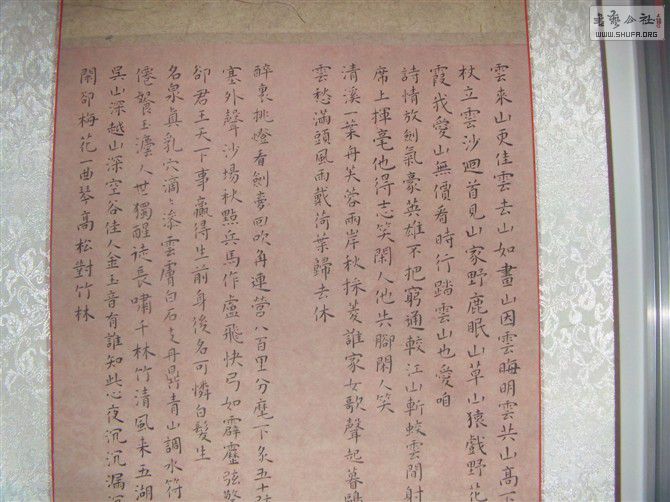 書藝公社
WWW.SHUFA.ORG
雲來山更佳雲去山如畫山因雲晦明雲共山高下
杖立雲沙迴首見山家野鹿眠山草山猿戲野花
霞我愛山無價看時行踏雲山也愛咱
詩情放劍氣豪英雄不把窮通較江山斬蛟雲間射
席上揮毫他得志笑閑人他失腳閑人笑
清溪一葉舟芙蓉兩岸秋採菱誰家女歌聲起暮鷗
雲愁滿頭風雨戴荷葉歸去休
醉裏挑燈看劍夢回吹角連營八百里分麾下炙五十弦
塞外聲沙場秋點兵馬作盧飛快弓如霹靂弦驚
卻君王天下事贏得生前身後名可憐白髮生
名泉真乳穴滴〻滲雲膚白石支丹鼎青山調水符
僊餐玉瀣人世獨醒徒長嘯千林竹清風来五湖
吳山深越山深空谷佳人金玉音有誰知此心夜沉沉漏沉
閑卻梅花一曲琴高松對竹林